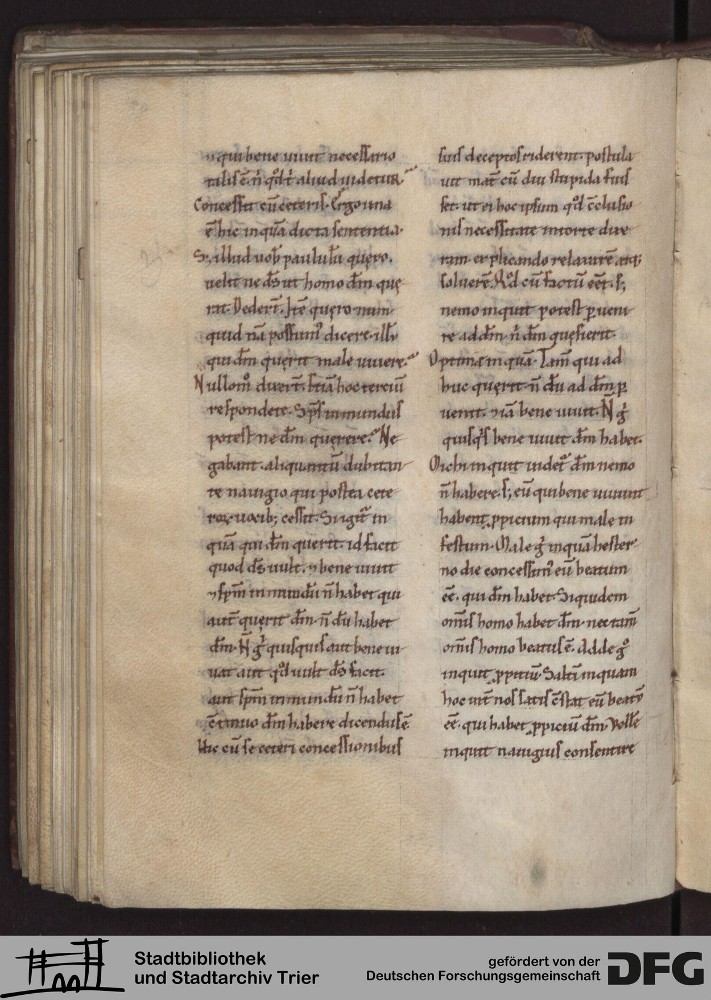 n̄ qui bene uiuit necessario
talis ē. ñ qd̓ t̓ aliud uidetur.
Concessit cū ceteris. Ergo una
ē hic inquā dicta sententia.
S; illud uob̄ paululū quero.
uelit ne ds̄ ut homo dm̄ que
rat. Dedert̄. Itē quero num
quid nā possum᾽ dicere. illū
qui dm̄ querit male uiuere.
Nullom̊ dixert̄. Etiā hoc terciū
respondete. Sps̄ inmundus
potest ne dm̄ querere. Ne
gabant. aliquantū dubitan
te nauigio qui postea cete
roꝝ uocib; cessit. Si igit̄ in
quā qui dm̄ querit. id facit
quod ds̄ uult. ⁊ bene uiuit
⁊ spm̄ inmundū ñ habet qui
aut̄ querit dm̄. ñ dū habet
dm̄. Ñ g̊ quisquis aut bene ui
uat aut qd̓ uult ds̄ facit.
aut spm̄ inmundū ñ habet
ētinuo dm̄ habere dicendus ē.
Hic cū se ceteri concessionibus
suis deceptos riderent. postula
uit mat̄ cū diu stupida fuis
set. ut ei hoc ipsum qd̓ c̄clusio
nis necessitate intorte dixe
ram. explicando relaxarē. atq;
soluerē. Qd̓ cū factū eēt. s;
nemo inquit potest ꝑueni
re ad dm̄. ñ dm̄ quesierit.
Optime inquā. Tam̄ qui ad
huc querit. ñ dū ad dm̄ ꝑ
uenit. ⁊iā bene uiuit. Ñ g̊
quisqs bene uiuit dm̄ habet.
Michi inquit uidet᾽ dm̄ nemo
ñ habere. s; eū qui bene uiuunt
habent ꝓpicium qui male in
festum. Male g̊ inquā hester
no die concessim᾽ eū beatum
eē. qui dm̄ habet. Siquidem
om̄is homo habet dm̄. nec tam̄
om̄is homo beatus ē. Adde g̊
inquit ꝓpitiū. Saltī inquam
hoc int̄ nos satis c̄stat eū beatū
eē. qui habet ꝓpiciū dm̄. Vellē
inquit nauigius consentire
Stadtbibliothek
und Stadtarchiv Trier
gefördert von der
Deutschen Forschungsgemeinschaft
DFG